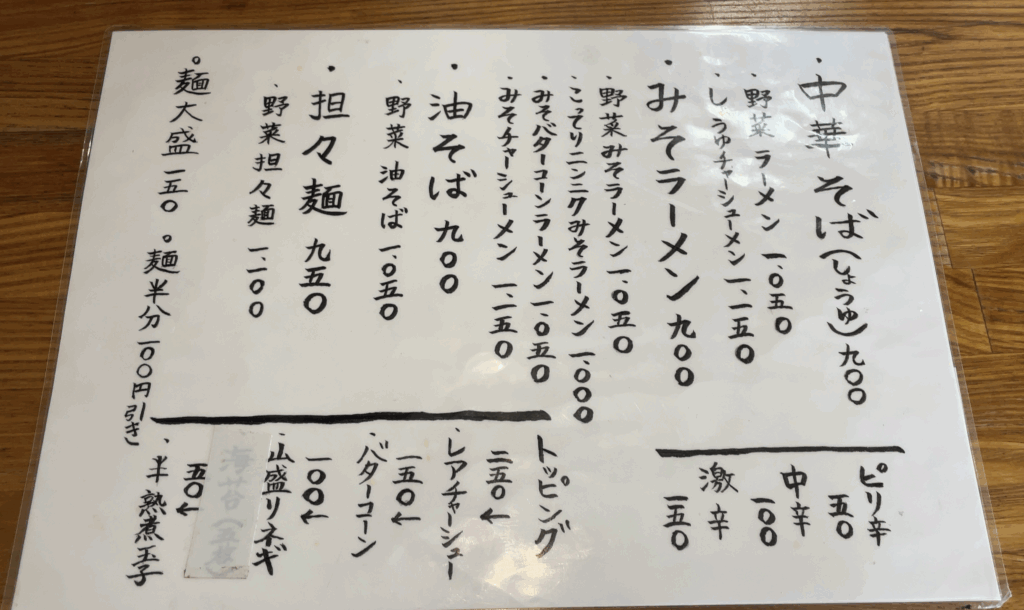 ・中華そば(しょうゆ)九〇〇
・野菜ラーメン 一、〇五〇
・しょうゆチャーシューメン 一、一五〇
・みそラーメン 九〇〇
・野菜みそラーメン 一、〇五〇
・こってりニンニクみそラーメン 一、〇〇〇
・みそバターコーンラーメン 一、〇五〇
・みそチャーシューメン 一、一五〇
・油そば 九〇〇
・野菜 油そば 一、〇五〇
・担々麺 九五〇
・野菜担々麺 一、一〇〇
。麺大盛 一五〇
。麺半分 一〇〇円引き
ピリ辛
五〇
中辛
一〇〇
激辛
一五〇
トッピング
二五〇←
・レアチャーシュー
一五〇←
・バターコーン
一〇〇←
・山盛りネギ
海苔(五枚)
五〇←
・半熟煮玉子